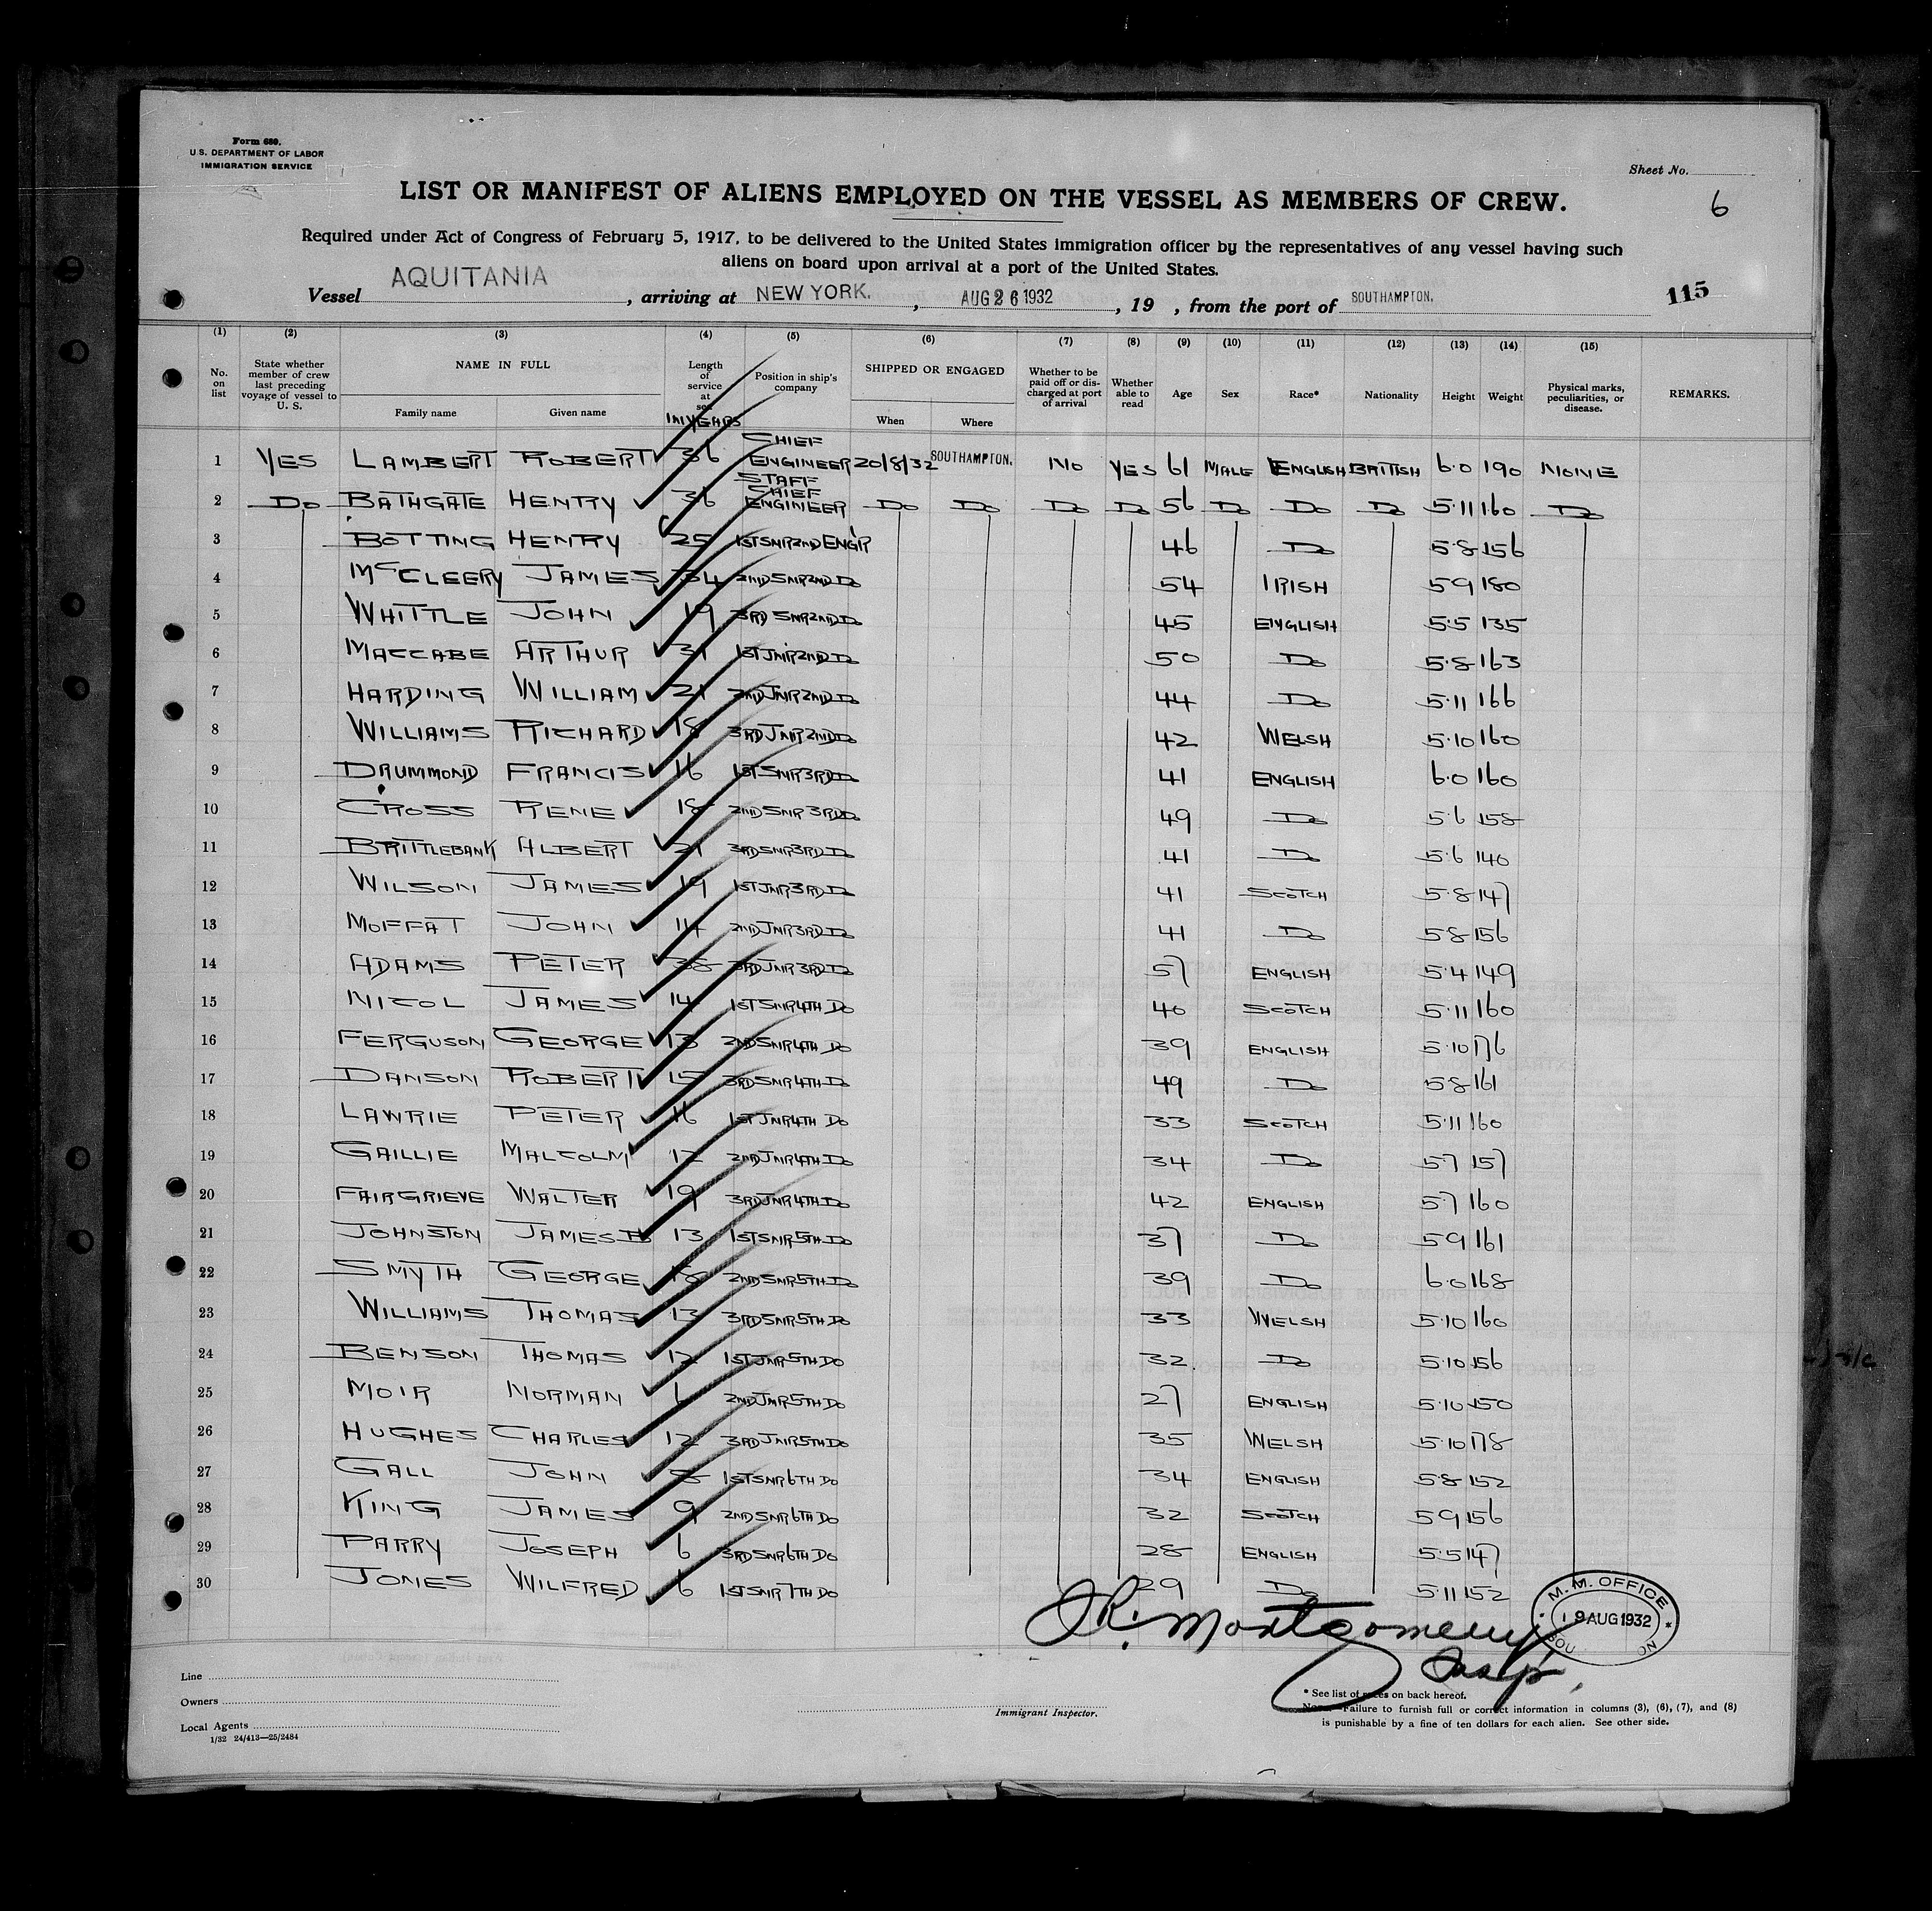 Form 680.
U.S. DEPARTMENT OF LABOR
IMMIGRATION SERVICE
Sheet No.
6
LIST OR MANIFEST OF ALIENS EMPLOYED ON THE VESSEL AS MEMBERS OF CREW.
Required under Act of Congress of February 5, 1917, to be delivered to the United States immigration officer by the representatives of any vessel having such
aliens on board upon arrival at a port of the United States.
Vessel AQUITANIA, arriving at NEW YORK., AUG 26 1932, 19 , from the port of SOUTHAMPTON.
115
(1) (2) (3) (4) (5) (6) (7) (8) (9) (10) (11) (12) (13) (14) (15)
No. on list State whether member of crew last preceding voyage of vessel to U. S. NAME IN FULL Family name Given name Length of service at sea IN YEARS Position in ship's company SHIPPED OR ENGAGED When Where Whether to be paid off or discharged at port of arrival Whether able to read Age Sex Race* Nationality Height Weight Physical marks, peculiarities, or disease. REMARKS.
1 YES LAMBERT ROBERT 36 CHIEF ENGINEER 20/8/32 SOUTHAMPTON. NO YES 61 MALE ENGLISH BRITISH 6.0 190 NONE
2 DO BATHGATE HENRY 36 STAFF CHIEF ENGINEER DO DO DO DO 56 DO DO DO 5.11 160 DO
3 BOTTING HENRY 25 1ST SNR 2ND ENG'R 46 DO 5.8 156
4 McCLEERY JAMES 34 2ND SNR 2ND DO 54 IRISH 5.9 180
5 WHITTLE JOHN 19 3RD SNR 2ND DO 45 ENGLISH 5.5 135
6 MACCABE ARTHUR 31 1ST JNR 2ND DO 50 DO 5.8 163
7 HARDING WILLIAM 21 2ND JNR 2ND DO 44 DO 5.11 166
8 WILLIAMS RICHARD 18 3RD JNR 2ND DO 42 WELSH 5.10 160
9 DRUMMOND FRANCIS 16 1ST SNR 3RD DO 41 ENGLISH 6.0 160
10 CROSS RENE 18 2ND SNR 3RD DO 49 DO 5.6 158
11 BRITTLEBANK ALBERT 21 3RD SNR 3RD DO 41 DO 5.6 140
12 WILSON JAMES 19 1ST JNR 3RD DO 41 SCOTCH 5.8 147
13 MOFFAT JOHN 14 2ND JNR 3RD DO 41 DO 5.8 156
14 ADAMS PETER 38 3RD JNR 3RD DO 57 ENGLISH 5.4 149
15 NICOL JAMES 14 1ST SNR 4TH DO 40 SCOTCH 5.11 160
16 FERGUSON GEORGE 13 2ND SNR 4TH DO 39 ENGLISH 5.10 176
17 DANSON ROBERT 15 3RD SNR 4TH DO 49 DO 5.8 161
18 LAWRIE PETER 16 1ST JNR 4TH DO 33 SCOTCH 5.11 160
19 GAILLIE MALCOLM 12 2ND JNR 4TH DO 34 DO 5.7 157
20 FAIRGRIEVE WALTER 19 3RD JNR 4TH DO 42 ENGLISH 5.7 160
21 JOHNSTON JAMES 13 1ST SNR 5TH DO 37 DO 5.9 161
22 SMYTH GEORGE 18 2ND SNR 5TH DO 39 DO 6.0 168
23 WILLIAMS THOMAS 13 3RD SNR 5TH DO 33 WELSH 5.10 160
24 BENSON THOMAS 12 1ST JNR 5TH DO 32 DO 5.10 156
25 MOIR NORMAN 6 2ND JNR 5TH DO 27 ENGLISH 5.10 150
26 HUGHES CHARLES 12 3RD JNR 5TH DO 35 WELSH 5.10 178
27 GALL JOHN 8 1ST SNR 6TH DO 34 ENGLISH 5.8 152
28 KING JAMES 9 2ND SNR 6TH DO 32 SCOTCH 5.9 156
29 PARRY JOSEPH 6 3RD SNR 6TH DO 28 ENGLISH 5.5 147
30 JONES WILFRED 6 1ST SNR 7TH DO 29 DO 5.11 152
R. Montgomery
Insp.
M.M. OFFICE
19 AUG 1932
Line
Owners
Local Agents
1/32 24/413—25/2484
Immigrant Inspector.
* See list of races on back hereof.
Note.—Failure to furnish full or correct information in columns (3), (6), (7), and (8)
is punishable by a fine of ten dollars for each alien. See other side.